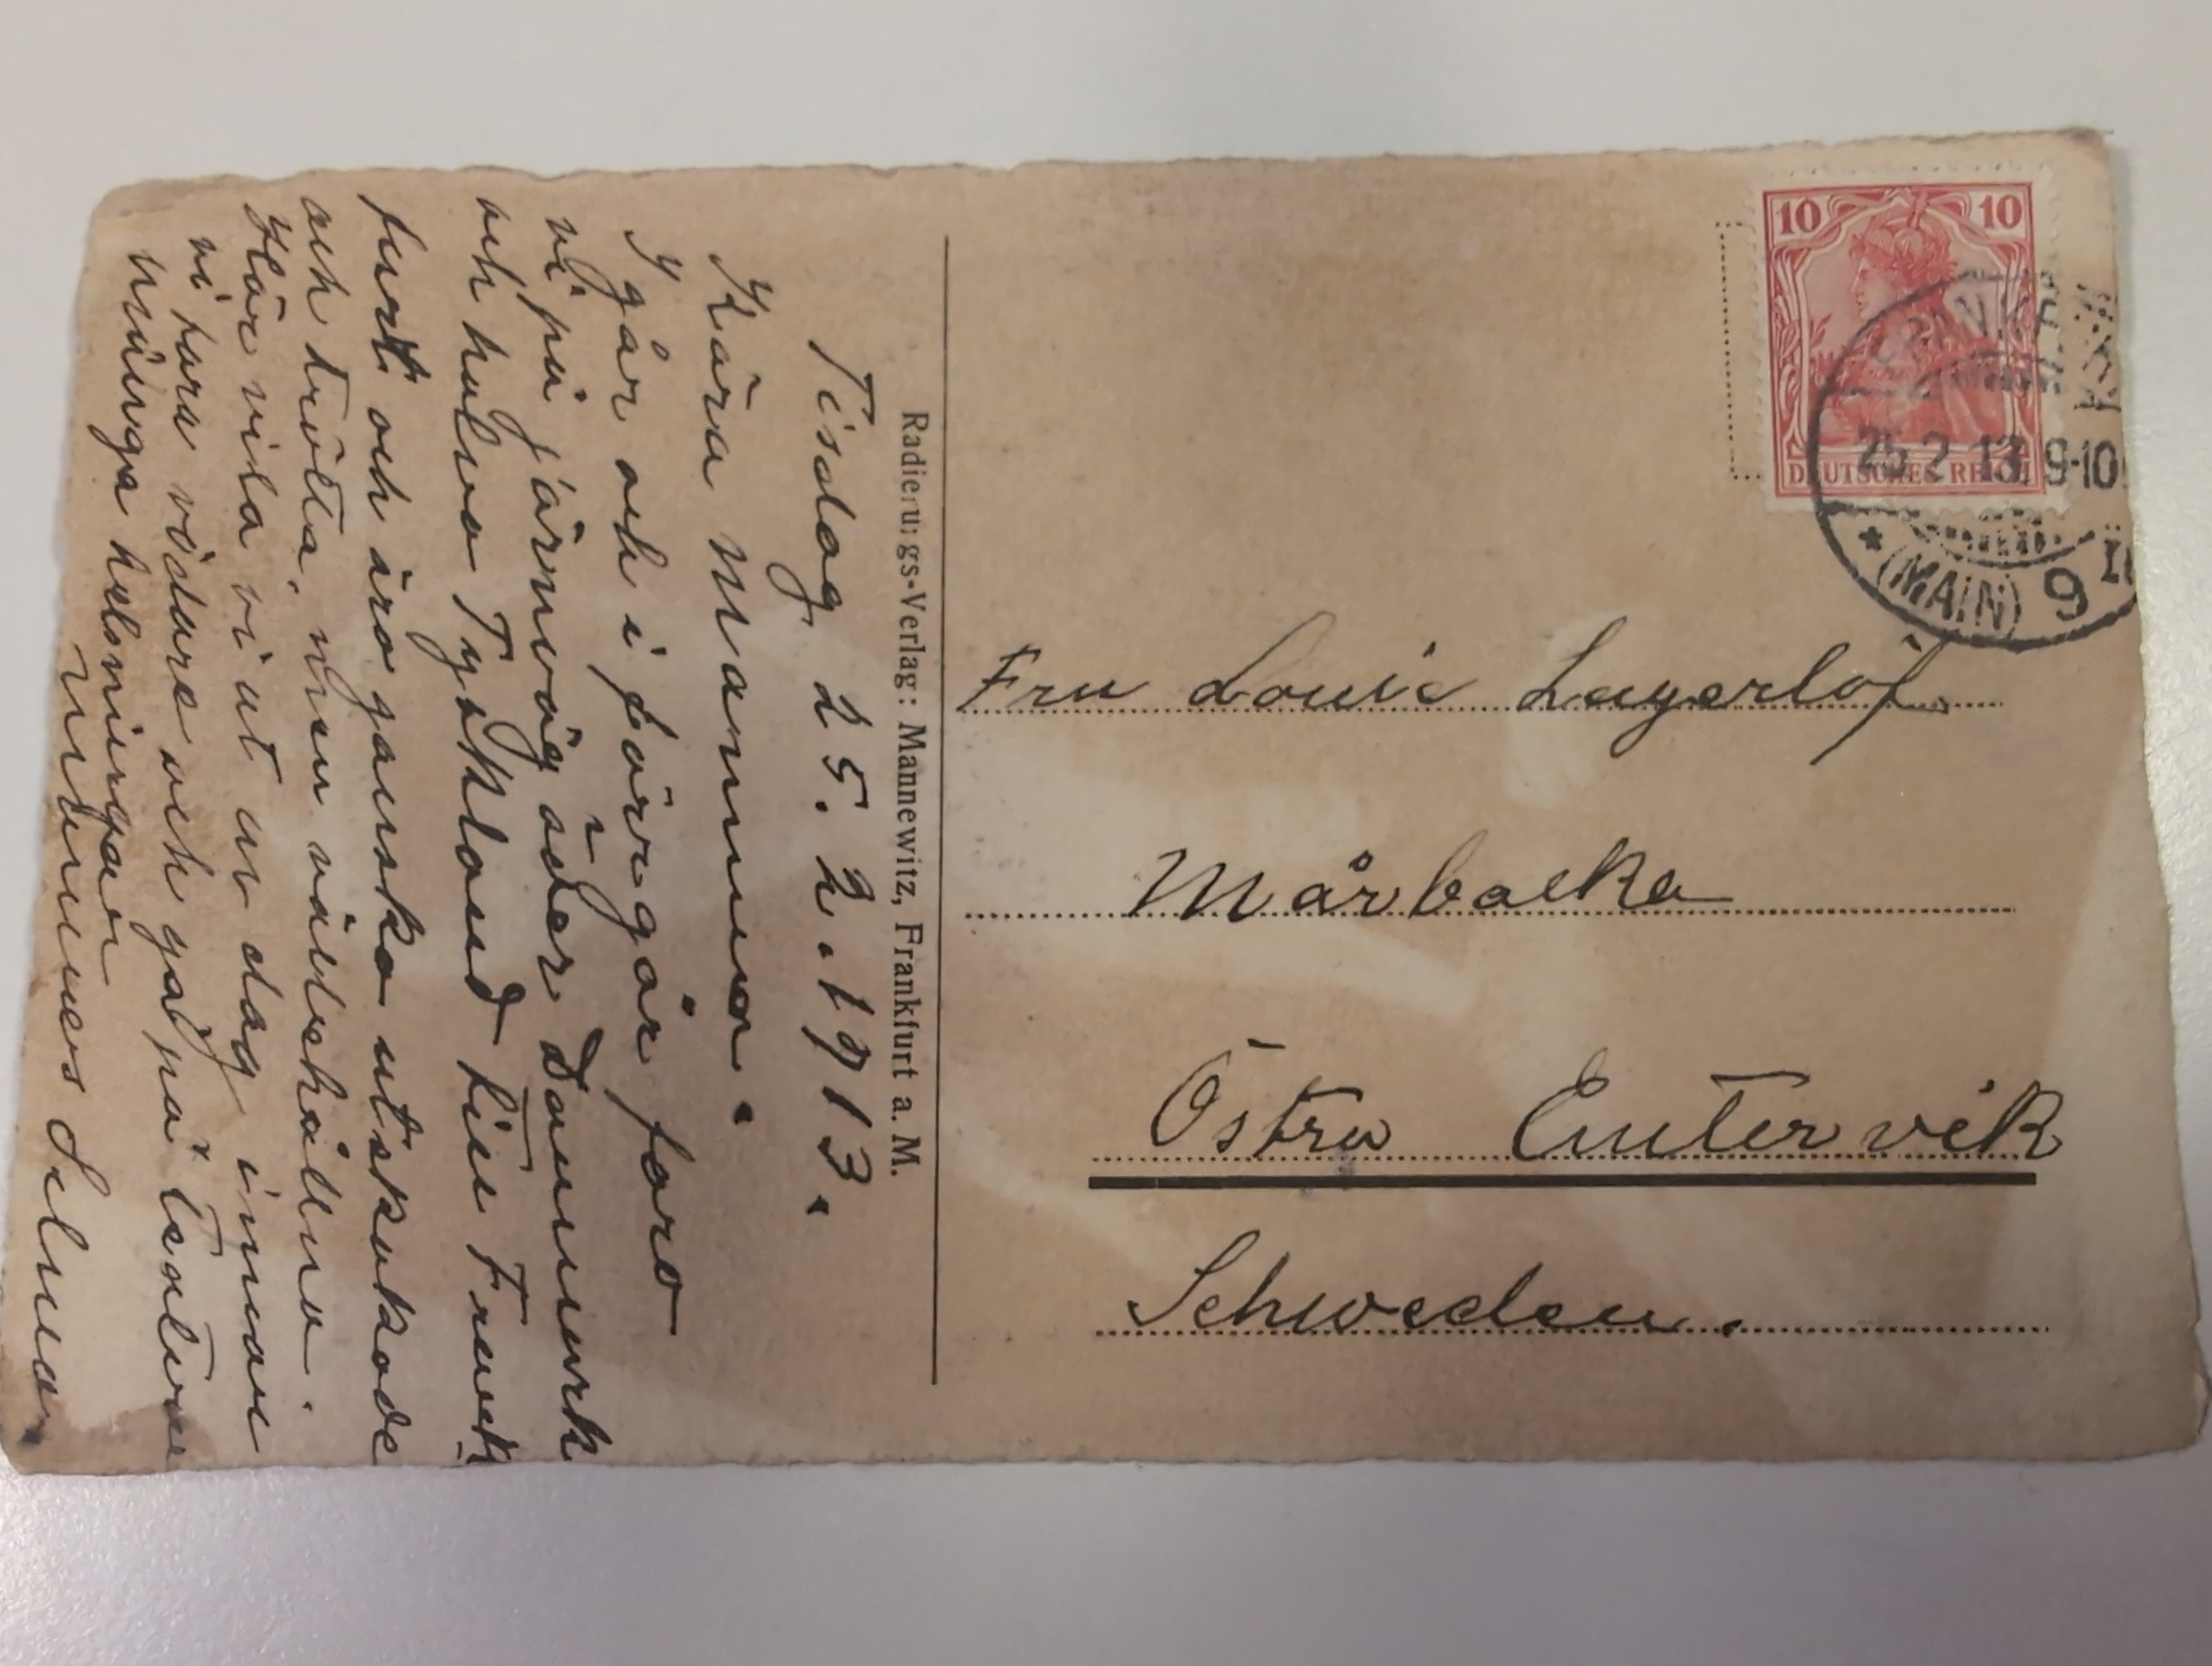 Tisdag 25.2.1913.
Kära Mamma.
I går och i förrgår foro
vi på järnväg öder Danmark
och halva Tyskland till Frank
furt och äro ganska utskakade
och trötta, men välbehållna.
Här vila vi ut av dag innan
vi fara vidare och gad på Italien
Många hälsningar
Mammas Selma
Radierungs-Verlag: Mannewitz, Frankfurt a. M.
10 10
DEUTSCHES REICH
FRANKF
25.2.13. 9-10
* (MAIN) 9
Fru Louise Lagerlöf.
Mårbacka
Östra Emtervik
Schweden.